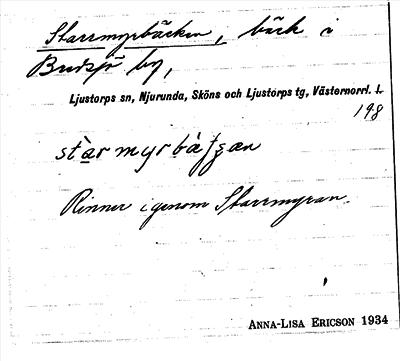 Starrmyrbäcken, bäck i
Bredsjö by,
Ljustorps sn, Njurunda, Sköns och Ljustorps tg, Västernorrl. l.
198
Rinner igenom Starrmyran.
ANNA-LISA ERICSON 1934